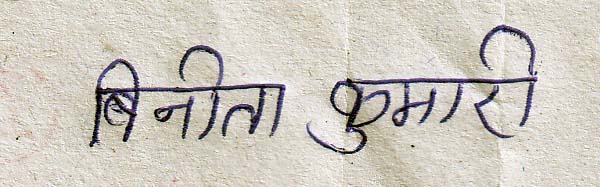 बिनीता कुमारी